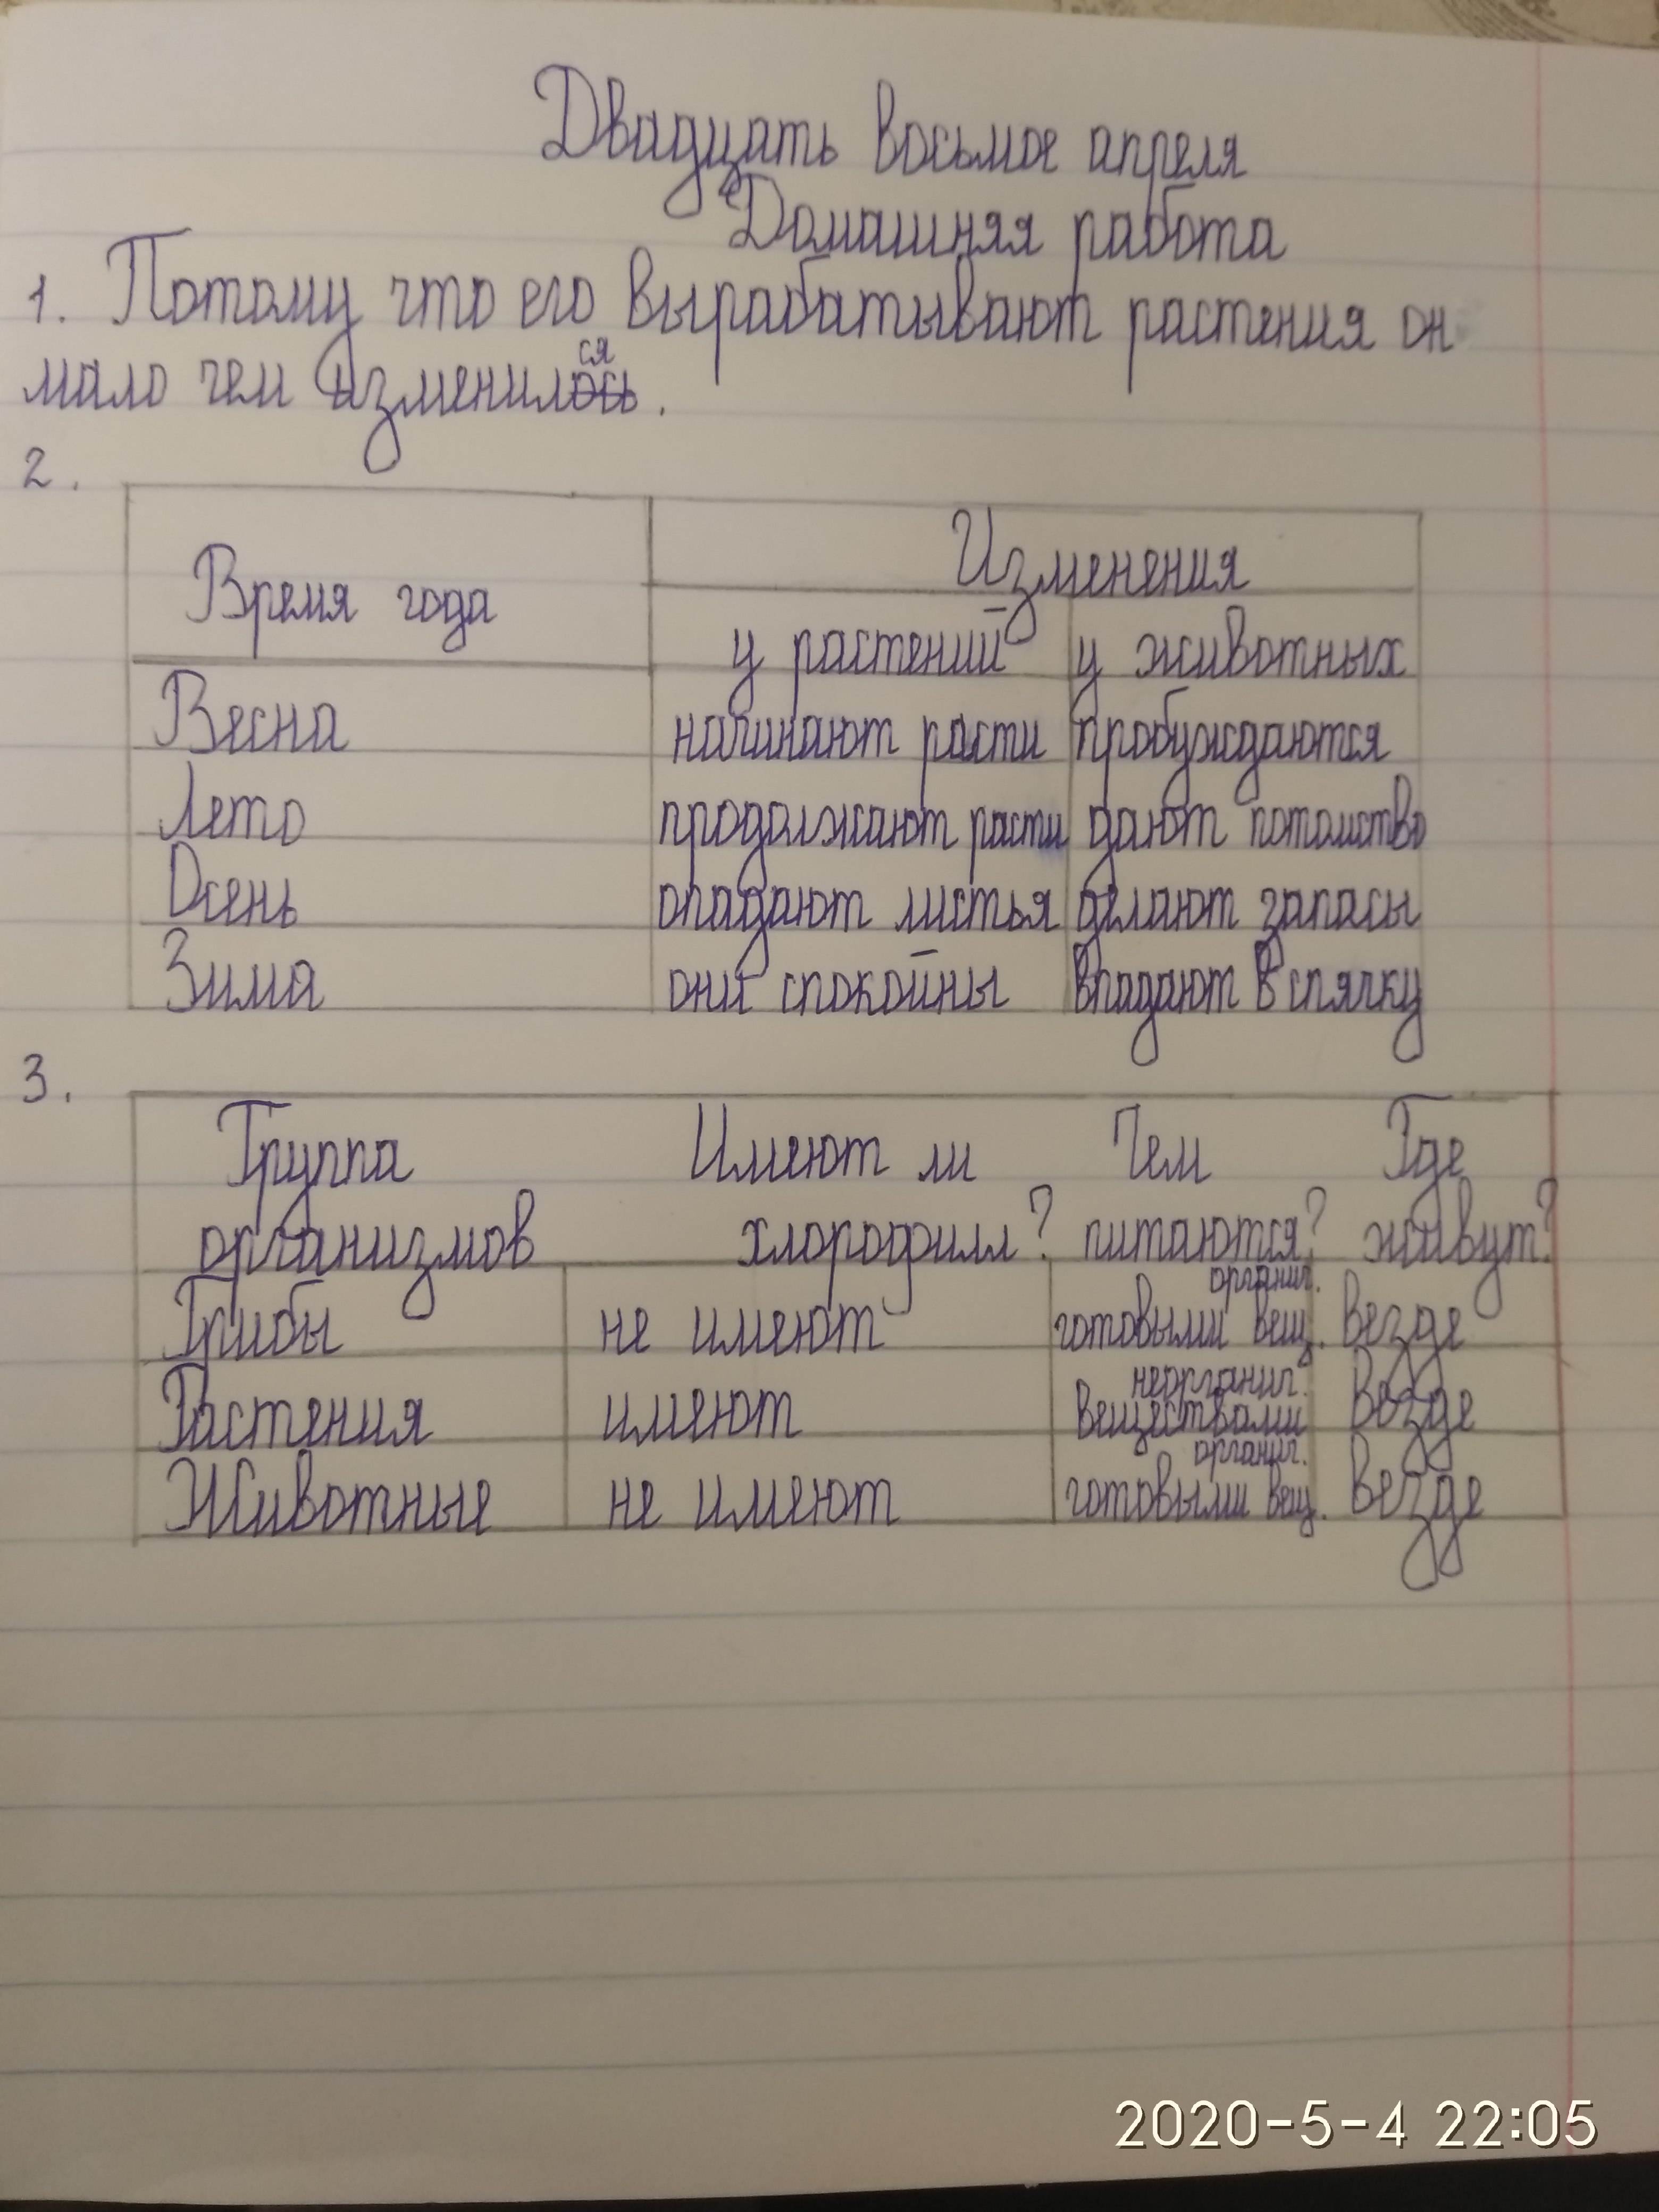 Двадцать восьмое апреля
Домашняя работа
1. Потому что его вырабатывают растения он
мало чем изменился.
2.
Время года Изменения
у растений у животных
Весна начинают расти пробуждаются
Лето продолжают расти дают потомство
Осень опадают листья делают запасы
Зима они спокойны впадают в спячку
3.
Группа Имеют ли Чем Где
организмов хлорофилл? питаются? живут?
органич.
Грибы не имеют готовыми вещ. везде
неорганич.
Растения имеют веществами везде
органич.
Животные не имеют готовыми вещ. везде
2020-5-4 22:05